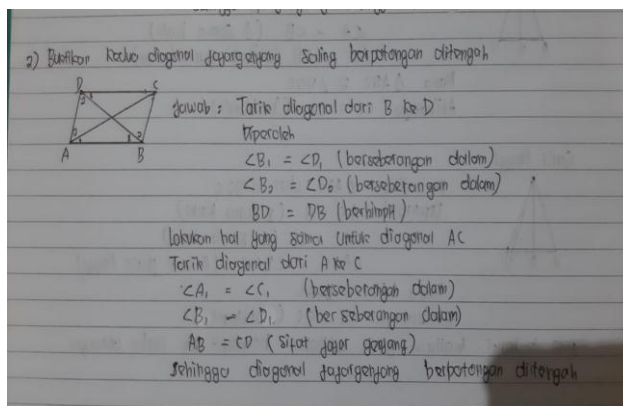 2) Buktikan kedua diagonal jajargenjang saling berpotongan ditengah
D C
2 1
Jawab : Tarik diagonal dari B ke D
Diperoleh
2 1 1 2
A B
∠B₁ = ∠D₁ (berseberangan dalam)
∠B₂ = ∠D₂ (berseberangan dalam)
BD = DB (berhimpit)
Lakukan hal yang sama untuk diagonal AC
Tarik diagonal dari A ke C
∠A₁ = ∠C₁ (berseberangan dalam)
∠B₁ = ∠D₁ (berseberangan dalam)
AB = CD (sifat jajar genjang)
Sehingga diagonal jajargenjang berpotongan ditengah